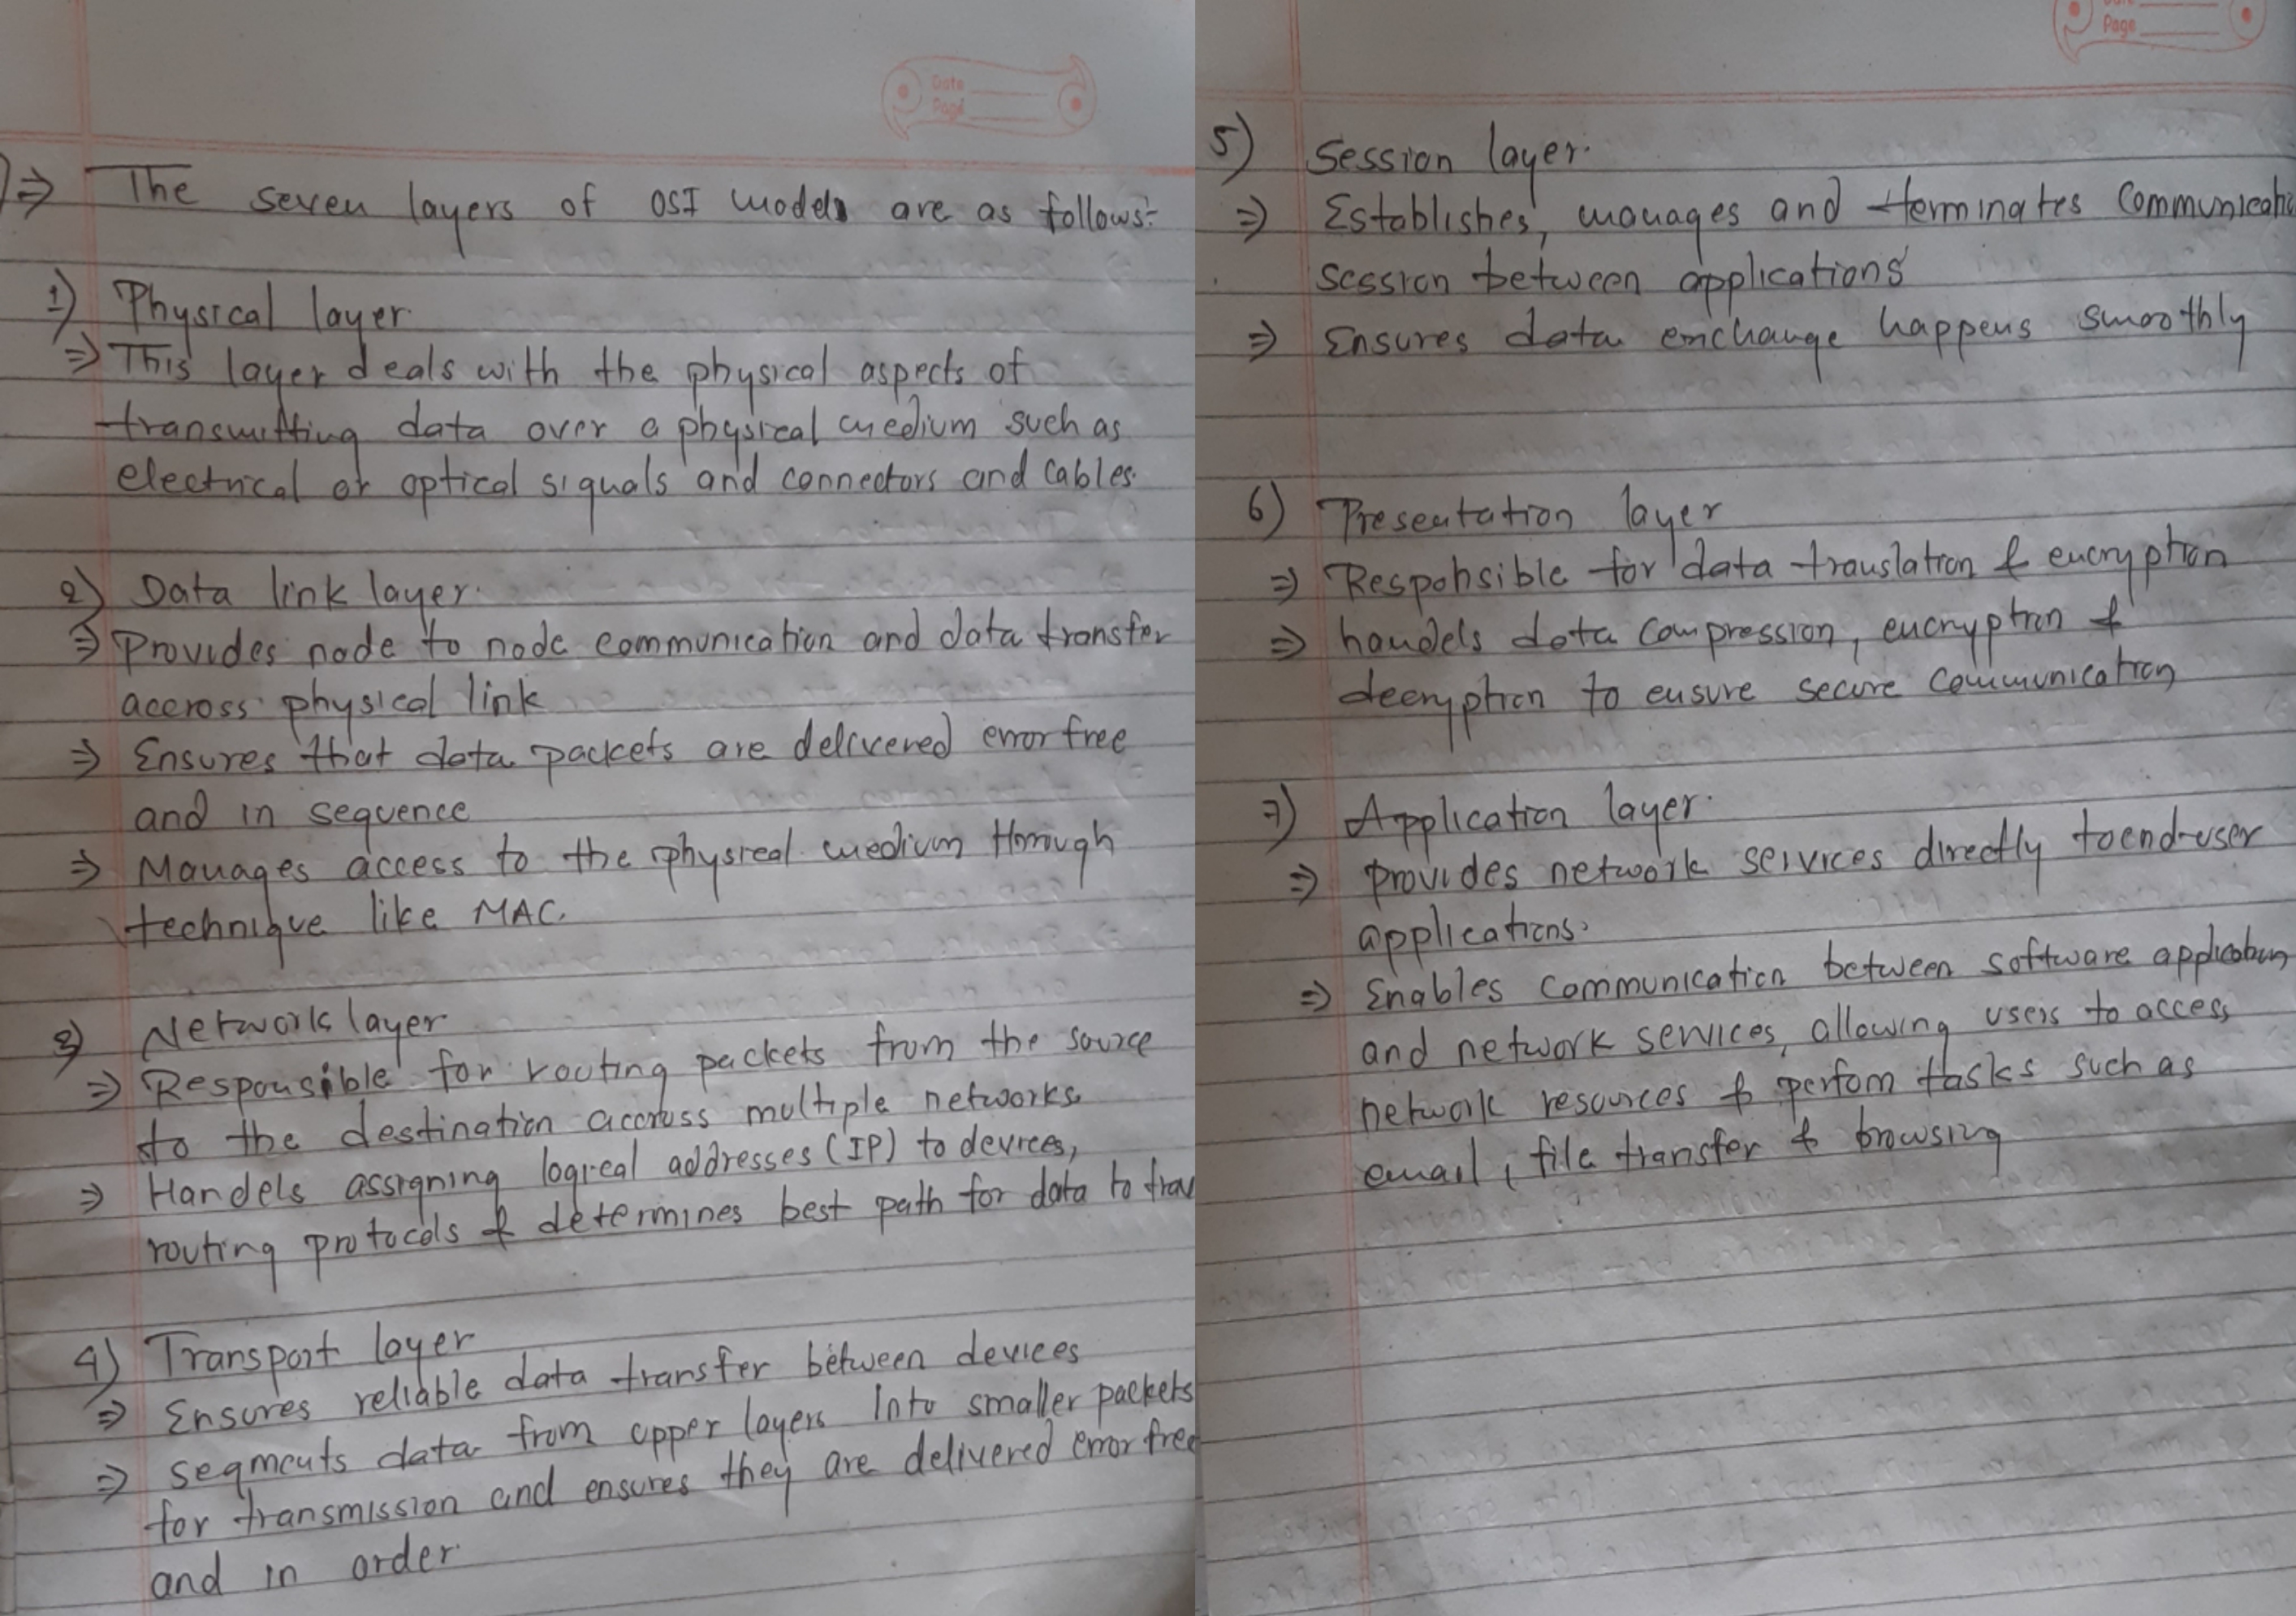 Date
Page
⇒ The seven layers of OSI model are as follows:-
1) Physical layer.
⇒ This layer deals with the physical aspects of
transmitting data over a physical medium such as
electrical or optical signals and connectors and cables.
2) Data link layer.
⇒ Provides node to node communication and data transfer
accross physical link
⇒ Ensures that data packets are delivered error free
and in sequence
⇒ Manages access to the physical medium through
technique like MAC.
3) Network layer
⇒ Responsible for routing packets from the source
to the destination accross multiple networks.
⇒ Handels assigning logical addresses (IP) to devices,
routing protocols & determines best path for data to trav
4) Transport layer
⇒ Ensures reliable data transfer between devices
⇒ segments data from upper layers Into smaller packets
for transmission and ensures they are delivered error free
and in order.
Page
5) Session layer.
⇒ Establishes, manages and terminates Communicati
session between applications
⇒ Ensures data exchange happens smoothly
6) Presentation layer
⇒ Responsible for data translation & encryption
⇒ handels data compression, encryption &
decryption to ensure secure communication
7) Application layer.
⇒ Provides network services directly to end-user
applications.
⇒ Enables communication between software application
and network services, allowing users to access
network resources & perfom tasks such as
email, file transfer & browsing